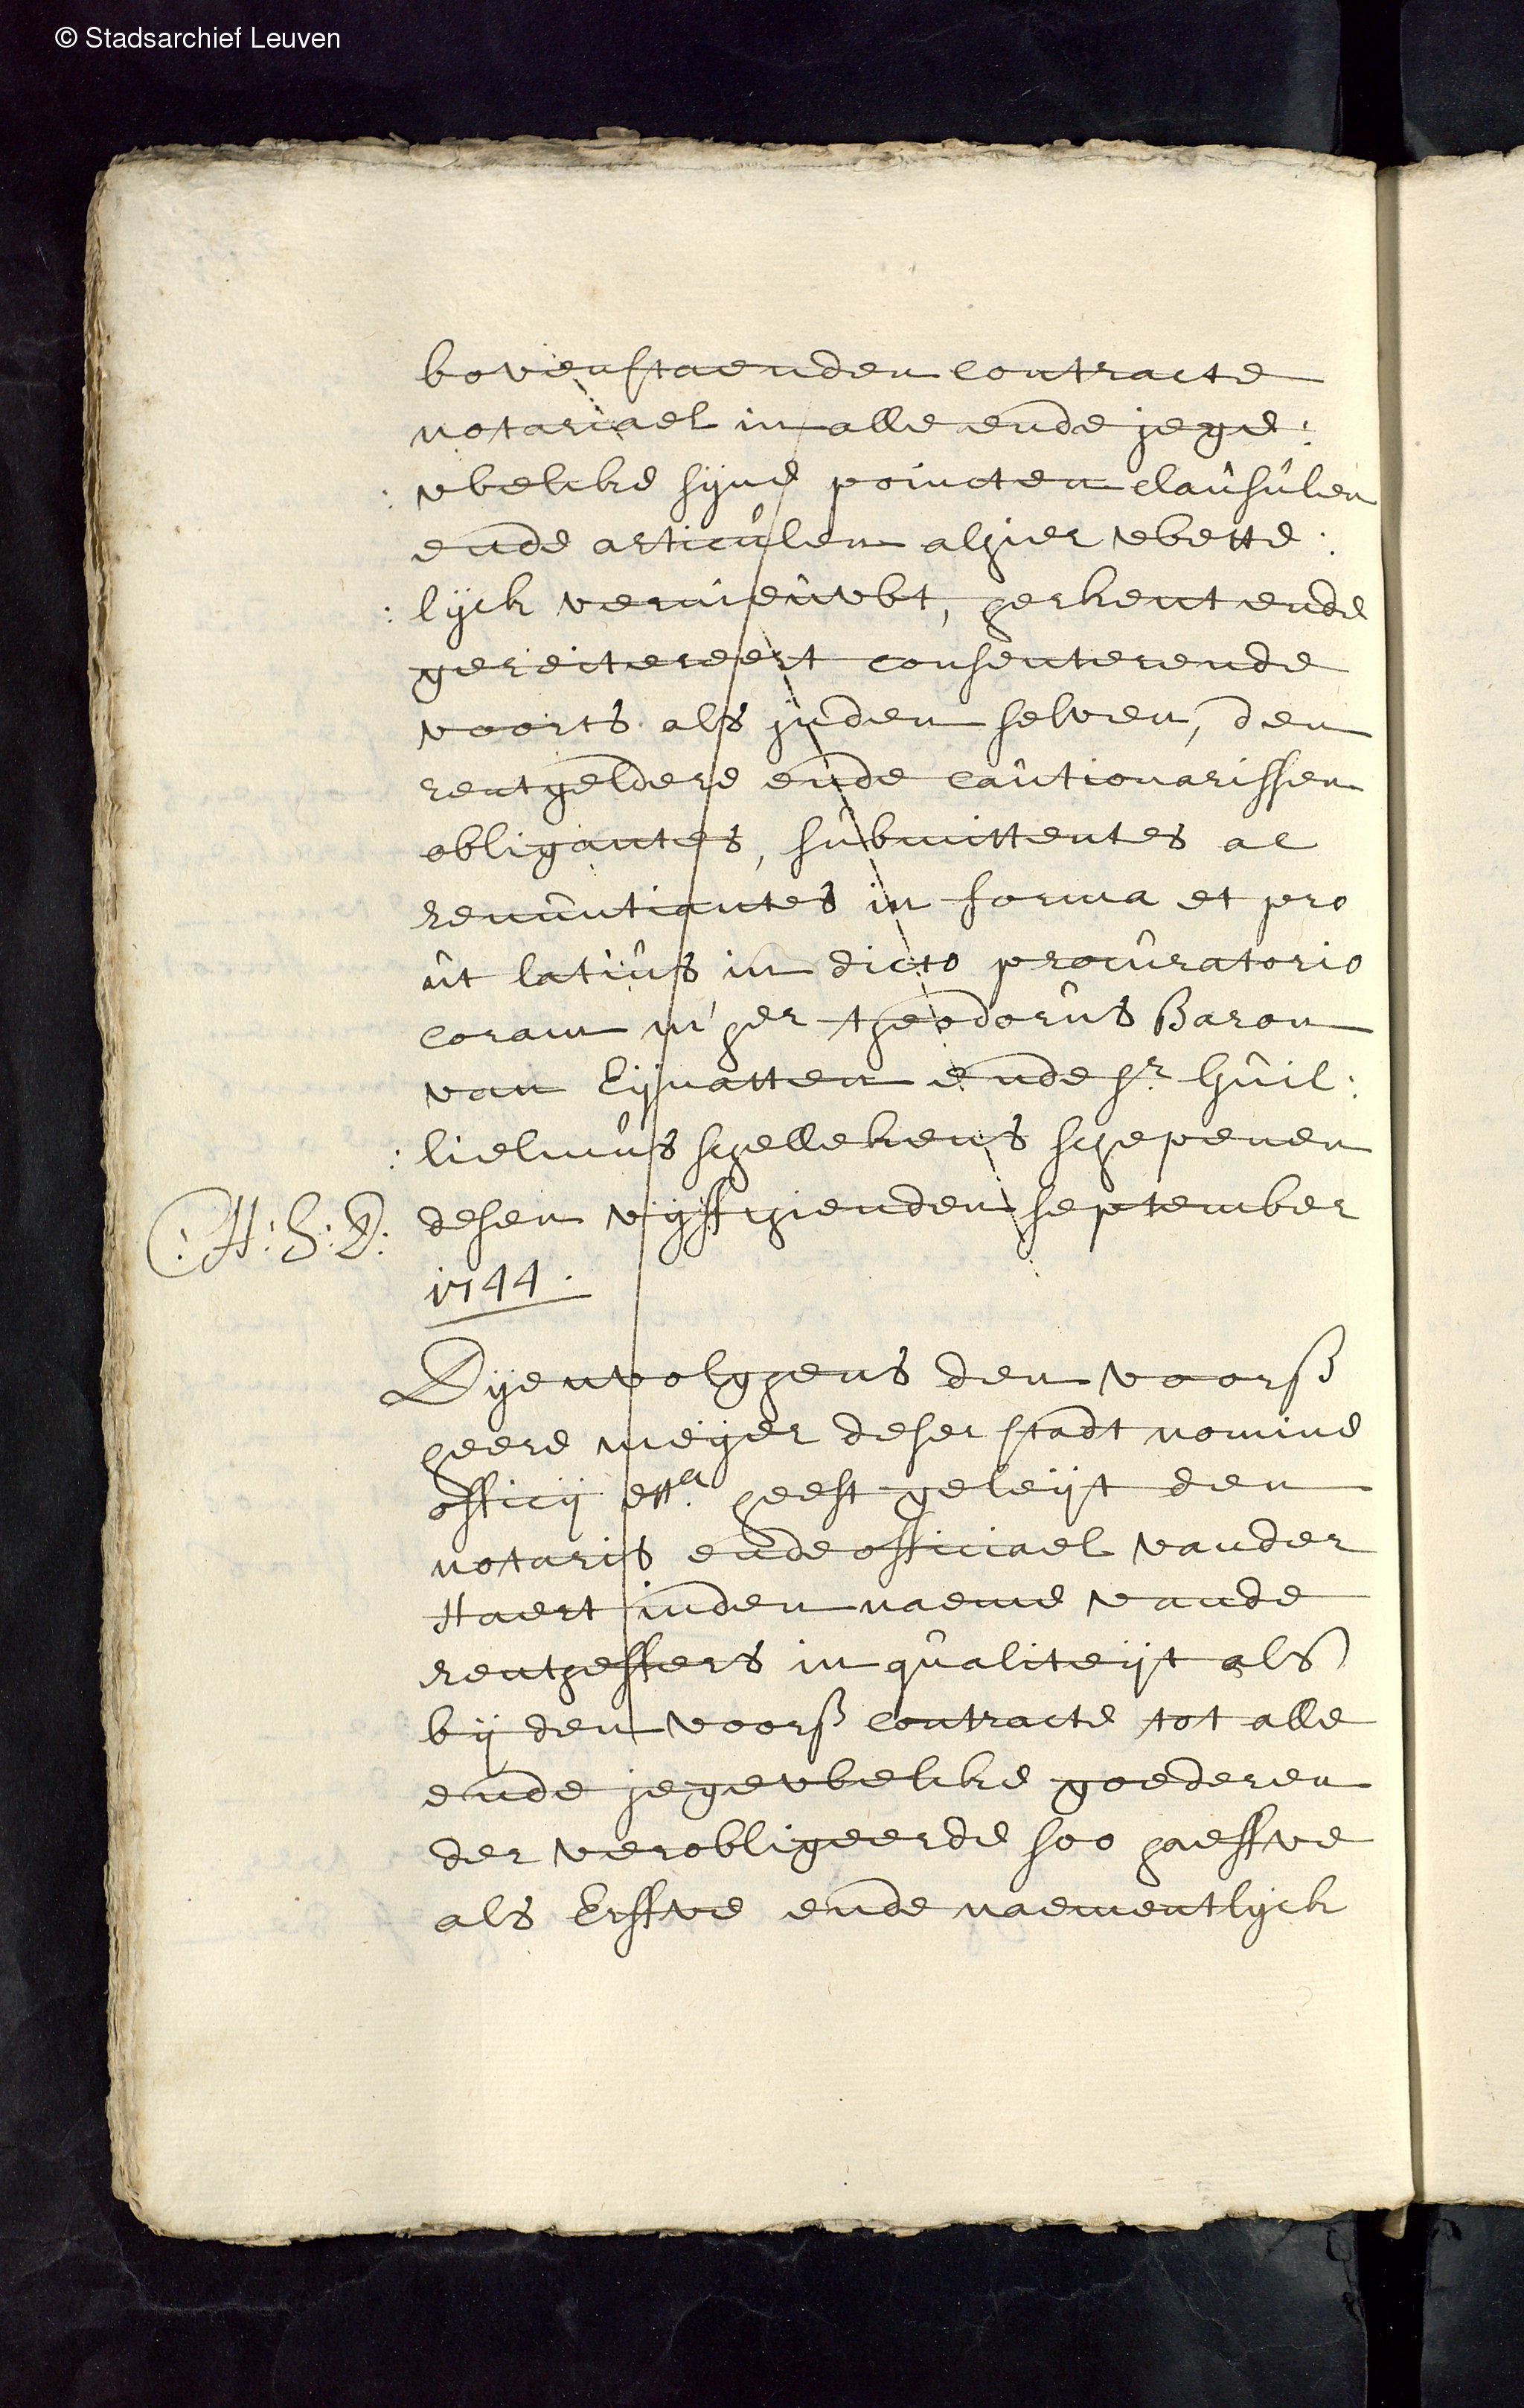 © Stadsarchief Leuven
bovenstaenden contracte
notariael in alle ende jege:
:welcke syne poincten clausulen
ende articulen alhier wette:
:lyck vernieuwt, herkent ende
gereitereert consenterende
voorts als inden selven, den
rentgeldere ende cautionarissen
obligantes, submittentes ac
renuntiantes in forma et pro
ut latius in dicto procuratorio
coram m'her theodorus Baron
van Eijnatten ende sr Guil:
:lielmus schellekens schepenen
desen vyffthienden september
1744.
:H:S:D:
Dyenvolghens den voorß
heere meijer deser stadt nomine
officij etta heeft geleijt den
notaris ende officiael vander
Haert inden naeme vande
rentheffers in qualiteijt als
bij den voorß contracte tot alle
ende jegewelcke goederen
der verobligeerde soo haeffve
als Erffve ende naementlyck